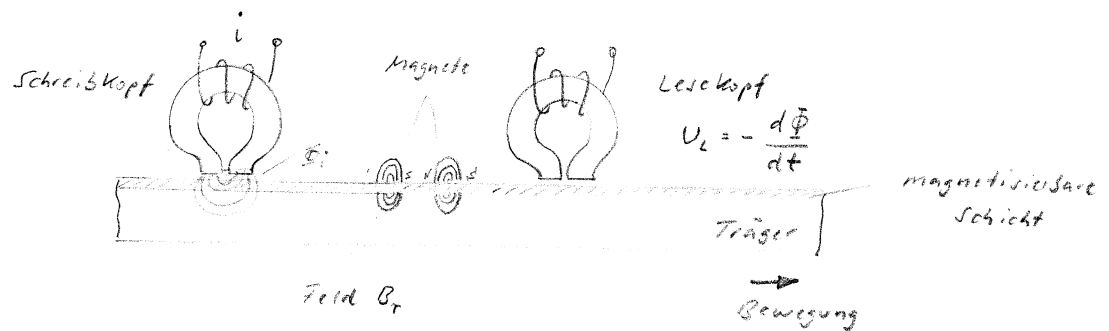 i
Schreibkopf
Magnete
Lesekopf
U_L = - dΦ/dt
Φi
S N S
magnetisierbare
Schicht
Träger
Feld B_r
Bewegung